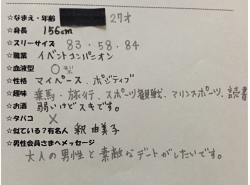 ☆なまえ・年齢 27才
☆身長 156cm
☆スリーサイズ 83・58・84
☆職業 イベントコンパニオン
☆血液型 O型
☆性格 マイペース・ポジティブ
☆趣味 乗馬・旅行、スポーツ観戦、マリンスポーツ、読書
☆お酒 弱いけどスキです。
☆タバコ ×
☆似ている?有名人 釈 由美子
☆男性会員さまへメッセージ
大人の男性と素敵なデートがしたいです。